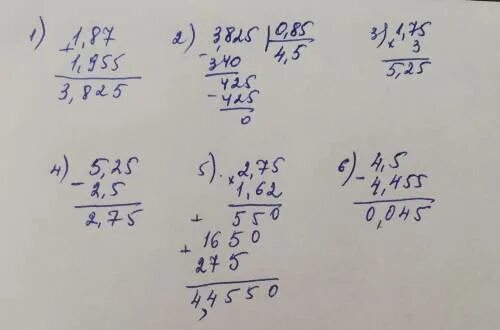 1) 1,87
+
1,955
3,825
2) 3,825 | 0,85
- 340 4,5
425
- 425
0
3) 1,75
× 3
5,25
4) 5,25
- 2,5
2,75
5) . 2,75
× 1,62
+ 550
+ 1650
275
4,4550
6) 4,5
- 4,455
0,045